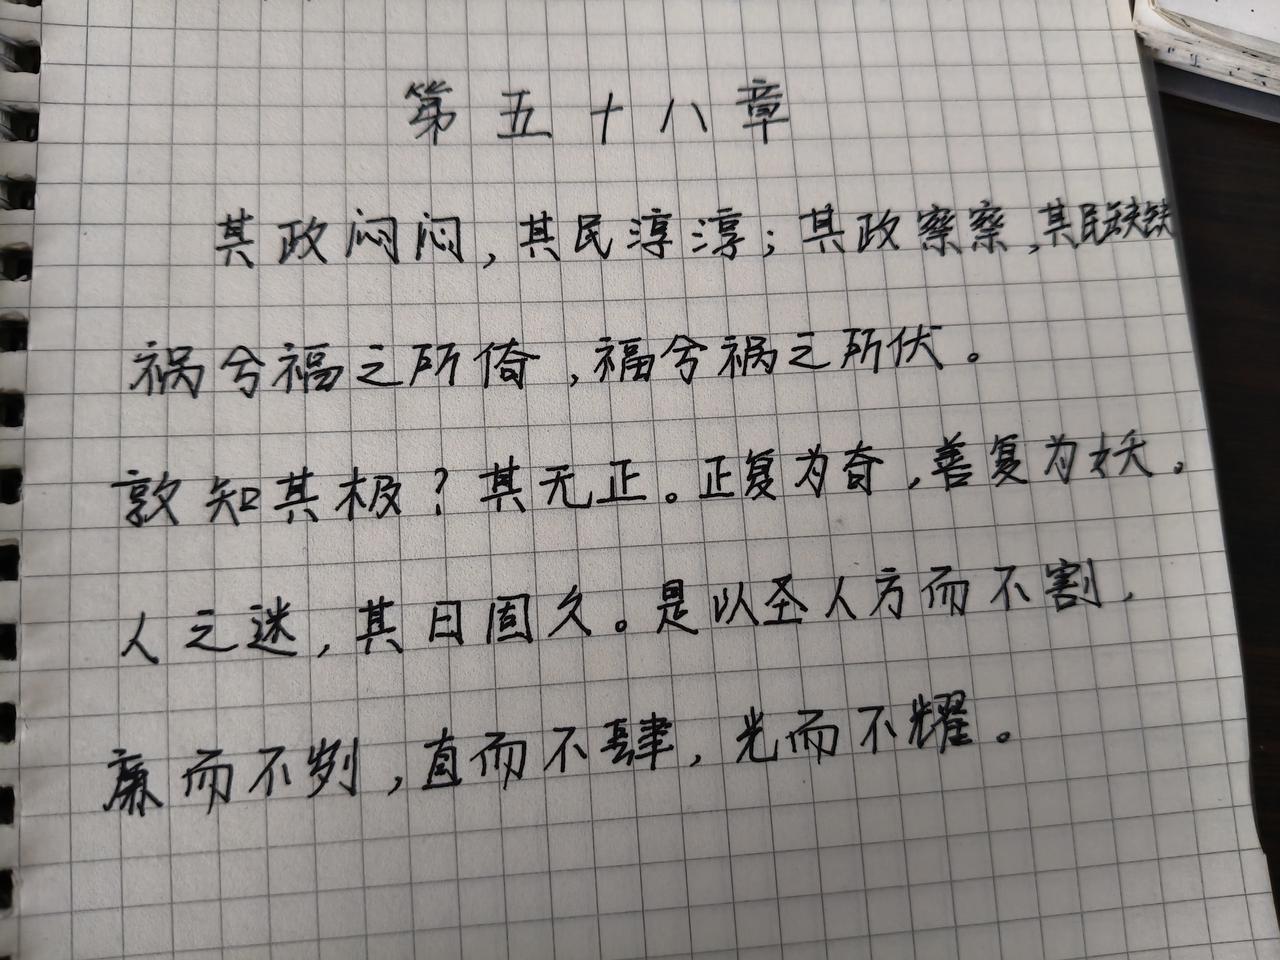 第五十八章
其政闷闷,其民淳淳;其政察察,其民缺缺
祸兮福之所倚,福兮祸之所伏。
敦知其极?其无正。正复为奇,善复为妖。
人之迷,其日固久。是以圣人方而不割,
廉而不刿,直而不肆,光而不耀。